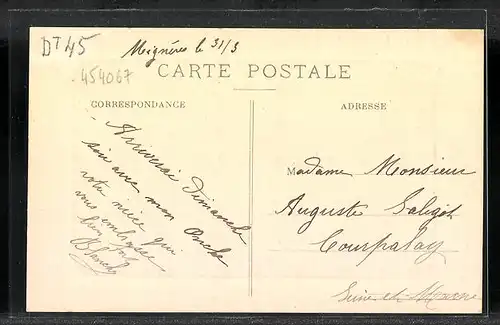 DT 45
454067
Mignéres le 31/3
CARTE POSTALE
CORRESPONDANCE
ADRESSE
Arriverai Dimanche
soir avec mon Oncle
votre nièce qui
vous embrasse
bien fort
Blanche
Madame Monsieur
Auguste
Courpalay
Seine et Marne